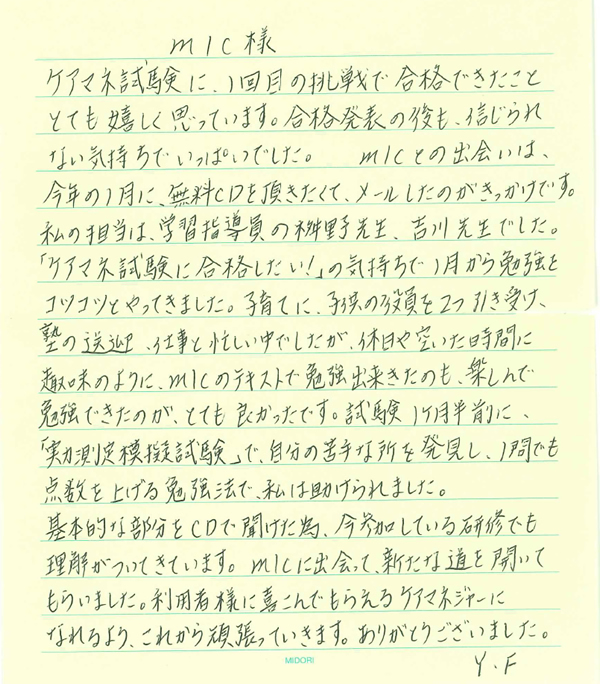 mic様
ケアマネ試験に、1回目の挑戦で合格できたこと
とても嬉しく思っています。合格発表の後も、信じられ
ない気持ちでいっぱいでした。 micとの出会いは、
今年の1月に、無料CDを頂きたくて、メールしたのがきっかけです。
私の担当は、学習指導員の桝野先生、吉川先生でした。
「ケアマネ試験に合格したい!」の気持ちで1月から勉強を
コツコツとやってきました。子育てに、子供の役員を2つ引き受け、
塾の送迎、仕事と忙しい中でしたが、休日や空いた時間に
趣味のように、micのテキストで勉強出来きたのも、楽しんで
勉強できたのが、とても良かったです。試験1ヶ月半前に、
「実力測定模擬試験」で、自分の苦手な所を発見し、1問でも
点数を上げる勉強法で、私は助けられました。
基本的な部分をCDで聞けた為、今参加している研修でも
理解がついてきています。micに出会って、新たな道を開いて
もらいました。利用者様に喜こんでもらえるケアマネジャーに
なれるよう、これから頑張っていきます。ありがとうございました。
Y.F
MIDORI